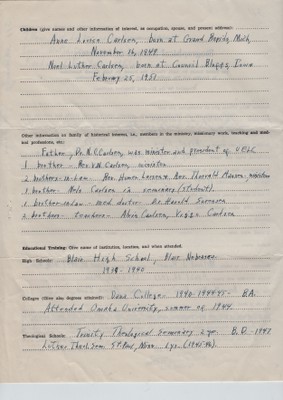 Children (give names and other information of interest, as occupation, spouse, and present address):
Anne Louise Carlsen, born at Grand Rapids, Mich.
November 16, 1949.
Noel Luther Carlsen, born at Council Bluffs, Iowa
February 25, 1951
Other information on family of historical interest, i.e., members in the ministry, missionary work, teaching and medical professions, etc:
Father, Dr. N.C. Carlsen, was minister and president of UELC
1 brother - Rev. V.M. Carlsen, minister
2 brothers-in-law - Rev. Homer Larsen, Rev. Thorvald Hansen, ministers
1 brother - Niels Carlsen in seminary (student).
1 brother-in-law - med doctor - Dr. Harold Sorensen
2 brothers - teachers - Alvin Carlsen, Viggo Carlsen
Educational Training: Give name of institution, location, and when attended.
High Schools: Blair High School, Blair Nebraska
1938 - 1940
Colleges (Give also degrees attained): Dana College - 1940-1944 - B.A.
Attended Omaha University, summer of 1944.
Theological Schools: Trinity Theological Seminary 2 yr. B.D.-1947
Luther Theol. Sem. St. Paul, Minn 1 yr. (1945-46).